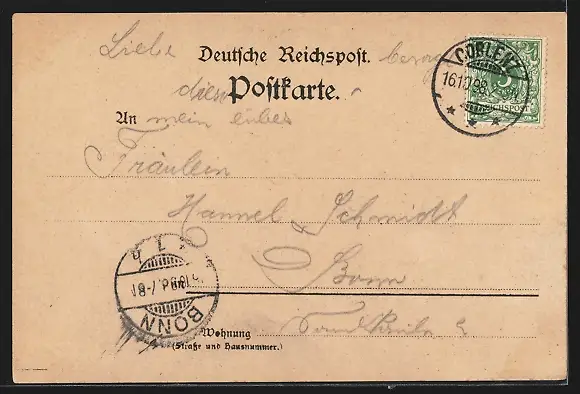 Liebe
Deutsche Reichspost.
Postkarte.
An mein liebes
Fräulein
Hannel Schmidt
Bonn
Wohnung
(Straße und Hausnummer.)
COBLENZ
16.10.98
5
REICHSPOST
BONN